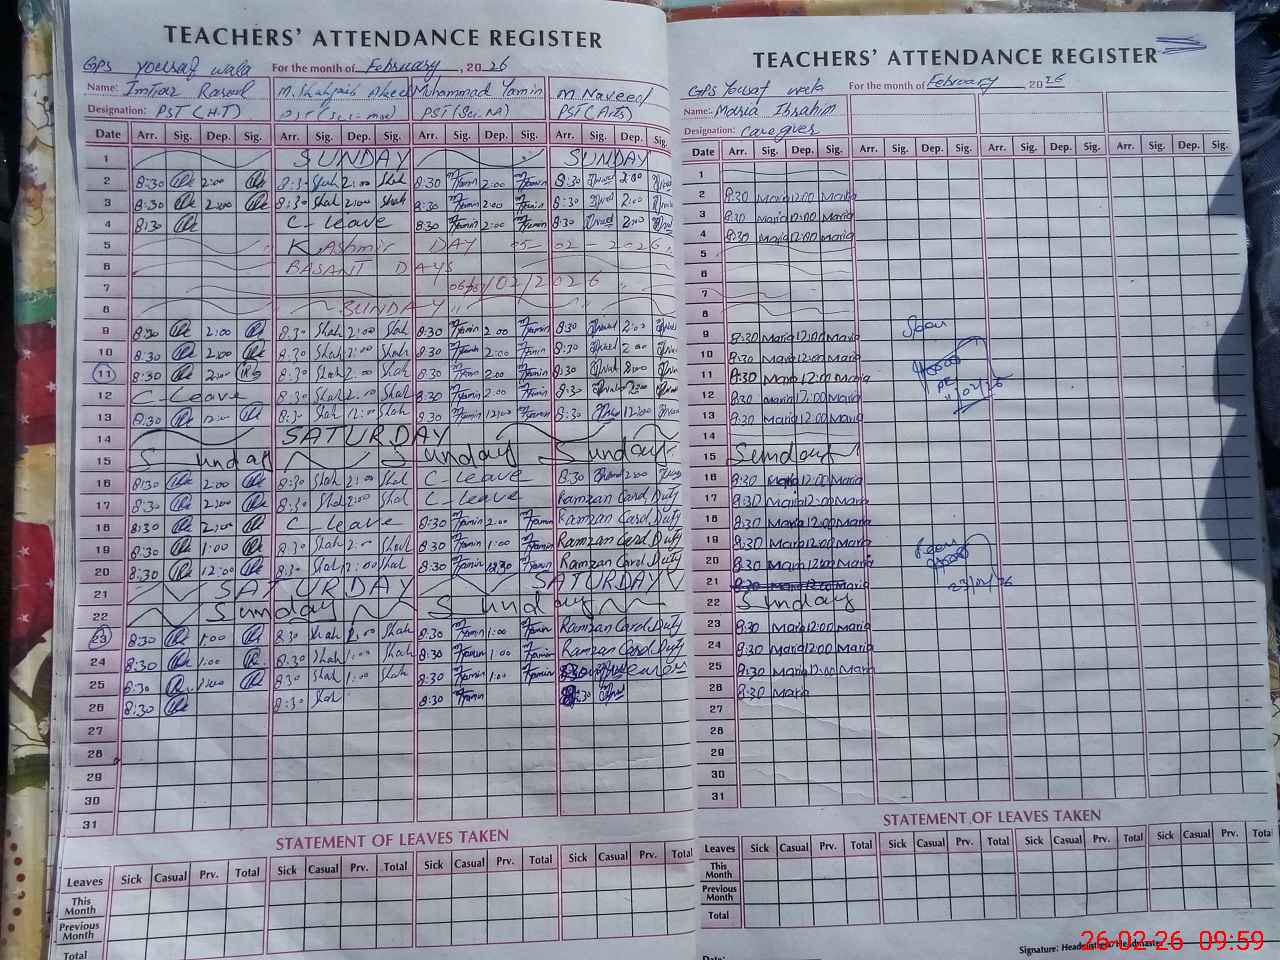 TEACHERS' ATTENDANCE REGISTER
GPS Yousaf wala For the month of February, 2026
Name: Imtiaz Rasool M. Shahzaib Ahmed Muhammad Yamin M Naveed
Designation: PST (H.T) PST (Sci. mat) PST (Sci. M) PST (Arts)
Date Arr. Sig. Dep. Sig. Arr. Sig. Dep. Sig. Arr. Sig. Dep. Sig. Arr. Sig. Dep. Sig.
1 SUNDAY SUNDAY
2 8:30 2:00 8:30 Shah 2:00 Shah 8:30 Yamin 2:00 Yamin 8:30 2:00
3 8:30 2:00 8:30 Shah 2:00 Shah 8:30 Yamin 2:00 Yamin 8:30 2:00
4 8:30 C-Leave 8:30 Yamin 2:00 Yamin 8:30 2:00
5 Kashmir DAY 05-02-2026
6 BASANT DAYS
7 /02/2026
8 SUNDAY
9 8:30 2:00 8:30 Shah 2:00 Shah 8:30 Yamin 2:00 Yamin 8:30 2:00
10 8:30 2:00 8:30 Shah 2:00 Shah 8:30 Yamin 2:00 Yamin 8:30 2:00
11 8:30 2:00 8:30 Shah 2:00 Shah 8:30 Yamin 2:00 Yamin 8:30
12 C-Leave 8:30 Shah 2:00 Shah 8:30 Yamin 2:00 Yamin 8:30
13 8:30 12:00 8:30 Shah 12:00 Shah 8:30 Yamin 12:00 Yamin 8:30 12:00
14 SATURDAY
15 Sunday Sunday Sunday
16 8:30 2:00 8:30 Shah 2:00 Shah C-Leave 8:30 2:00
17 8:30 2:00 8:30 Shah 2:00 Shah C-Leave Ramzan Card Duty
18 8:30 2:00 C-Leave 8:30 Yamin 2:00 Yamin Ramzan Card Duty
19 8:30 1:00 8:30 Shah Shah 8:30 Yamin 1:00 Yamin Ramzan Card Duty
20 8:30 12:00 8:30 Shah 12:00 Shah 8:30 Yamin 12:30 Yamin Ramzan Card Duty
21 SATURDAY SATURDAY
22 Sunday Sunday
23 8:30 1:00 8:30 Shah 1:00 Shah 8:30 Yamin 1:00 Yamin Ramzan Card Duty
24 8:30 1:00 8:30 Shah 1:00 Shah 8:30 Yamin 1:00 Yamin Ramzan Card Duty
25 8:30 1:00 8:30 Shah 1:00 Shah 8:30 Yamin 1:00 Yamin
26 8:30 8:30 Shah 8:30 Yamin 8:30
27
28
29
30
31
STATEMENT OF LEAVES TAKEN
Leaves Sick Casual Prv. Total Sick Casual Prv. Total Sick Casual Prv. Total Sick Casual Prv. Total
This Month
Previous Month
Total
TEACHERS' ATTENDANCE REGISTER
GPS Yousaf wala For the month of February 2026
Name: Maria Ibrahim
Designation: Care giver
Date Arr. Sig. Dep. Sig. Arr. Sig. Dep. Sig. Arr. Sig. Dep. Sig. Arr. Sig. Dep. Sig.
1
2 8:30 Maria 12:00 Maria
3 8:30 Maria 12:00 Maria
4 8:30 Maria 12:00 Maria
5
6
7
8
9 8:30 Maria 12:00 Maria
10 8:30 Maria 12:00 Maria
11 8:30 Maria 12:00 Maria
12 8:30 Maria 12:00 Maria
13 8:30 Maria 12:00 Maria
14
15 Sunday
16 8:30 Maria 12:00 Maria
17 8:30 Maria 12:00 Maria
18 8:30 Maria 12:00 Maria
19 8:30 Maria 12:00 Maria
20 8:30 Maria 12:00 Maria
21 8:30 Maria 12:00 Maria
22 Sunday
23 8:30 Maria 12:00 Maria
24 8:30 Maria 12:00 Maria
25 8:30 Maria 12:00 Maria
26 8:30 Maria
27
28
29
30
31
STATEMENT OF LEAVES TAKEN
Leaves Sick Casual Prv. Total Sick Casual Prv. Total Sick Casual Prv. Total Sick Casual Prv. Total
This Month
Previous Month
Total
Signature: Headmistress/Headmaster
Date:
26-02-26 09:59